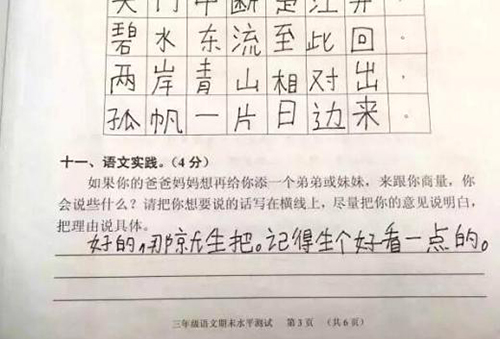 天门中断楚江开
碧水东流至此回。
两岸青山相对出。
孤帆一片日边来。
十一、语文实践。(4分)
如果你的爸爸妈妈想再给你添一个弟弟或妹妹，来跟你商量，你
会说些什么？请把你想要说的话写在横线上，尽量把你的意见说明白，
把理由说具体。
好的，那京尤生把。记得生个好看一点的。
三年级语文期末水平测试 第3页 （共6页）